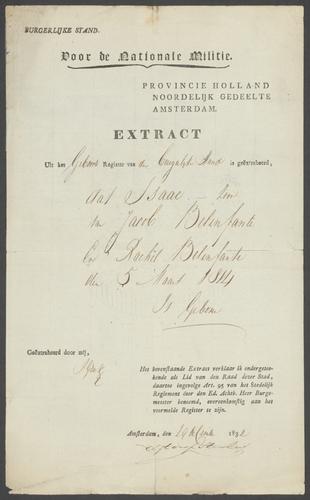 BURGERLIJKE STAND.
Voor de Nationale Militie.
PROVINCIE HOLLAND
NOORDELIJK GEDEELTE
AMSTERDAM.
EXTRACT
Uit het Geboorte Register van de Burgerlyke Stand is geëxtraheerd,
dat Isaac
Jacob Belinfante
En Rachel Belinfante
den 5 Maart 1814
Is Geboren
Geëxtraheerd door mij,
Het bovenstaande Extract verklaar ik ondergetee-
kende als Lid van den Raad dezer Stad,
daartoe ingevolge Art. 95 van het Stedelijk
Reglement door den Ed. Achtb. Heer Burge-
meester benoemd, overeenkomstig aan het
voormelde Register te zijn.
Amsterdam, den 19 1832